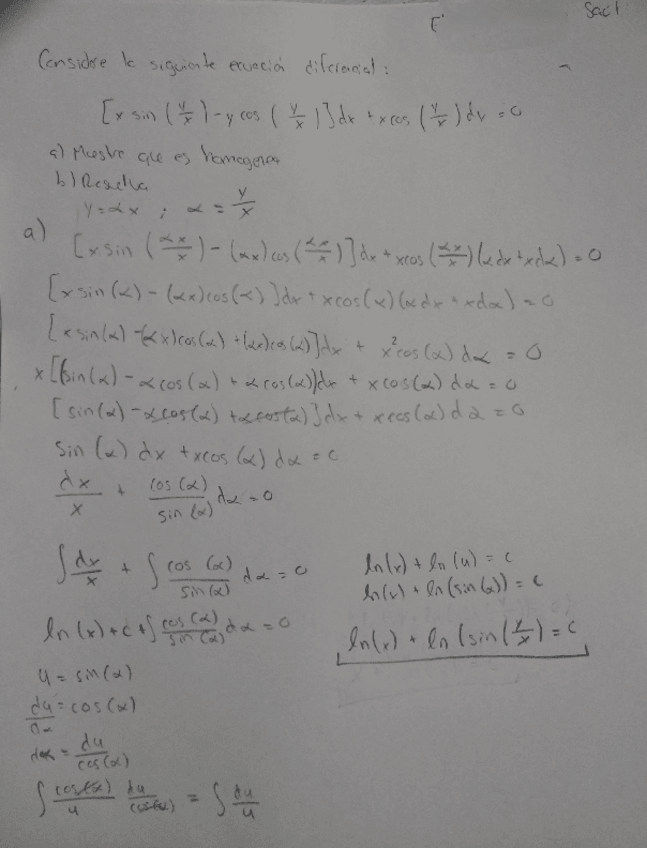 Sacf
E'
Considere la siguiente ecuación diferencial:
[x sin (y/x) - y cos (y/x)]dx + x cos (y/x) dy = 0
a) Muestre que es homogenea
b) Resuelva
y = αx ; α = y/x
a) [x sin (αx/x) - (αx) cos (αx/x)]dx + x cos (αx/x)(α dx + x dα) = 0
[x sin (α) - (αx) cos(α)]dx + x cos(α)(α dx + x dα) = 0
[x sin(α) - (αx) cos(α) + (αx) cos(α)]dx + x² cos (α) dα = 0
x [(sin(α) - α cos (α) + α cos(α)]dx + x cos(α) dα = 0
[sin(α) - α cos(α) + α cos(α)]dx + x cos(α) dα = 0
sin (α) dx + x cos (α) dα = 0
dx/x + cos (α)/sin (α) dα = 0
∫ dx/x + ∫ cos (α)/sin(α) dα = 0
ln (x) + c + ∫ cos (α)/sin (α) dα = 0
u = sin(α)
du/dα = cos(α)
dα = du/cos(α)
∫ cos(α)/u du/cos(α) = ∫ du/u
ln(x) + ln (u) = c
ln(x) + ln (sin(α)) = c
ln(x) + ln (sin(y/x) = c